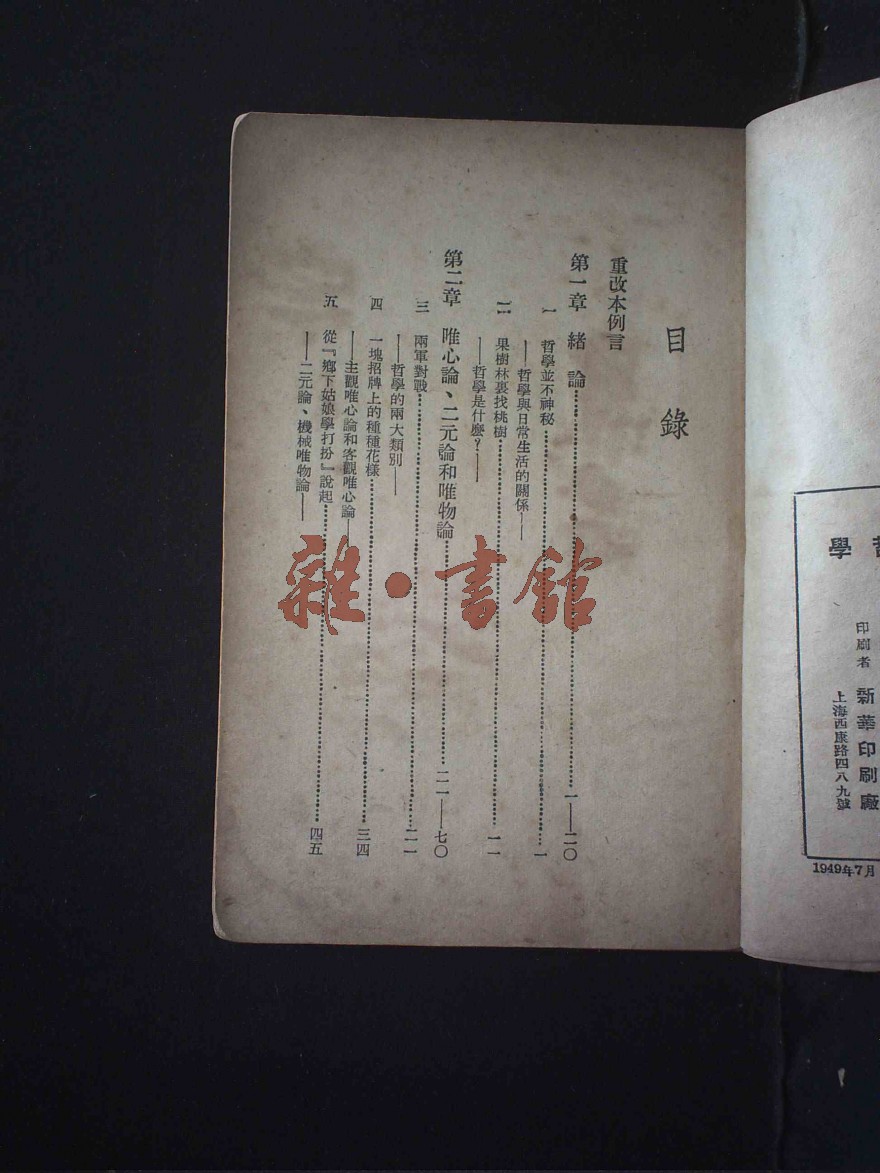 學
印刷者 新華印刷廠
上海西康路四八九號
1949年7月
目錄
重改本例言
第一章 緒論…………一——二〇
一 哲學並不神秘…………一
——哲學與日常生活的關係——
二 果樹林裏找桃樹…………一一
——哲學是什麼?——
第二章 唯心論、二元論和唯物論…………二一——七〇
三 兩軍對戰…………二一
——哲學的兩大類別——
四 一塊招牌上的種種花樣…………三四
——主觀唯心論和客觀唯心論——
五 從『鄉下姑娘學打扮』說起…………四五
——二元論、機械唯物論——
雜·書館